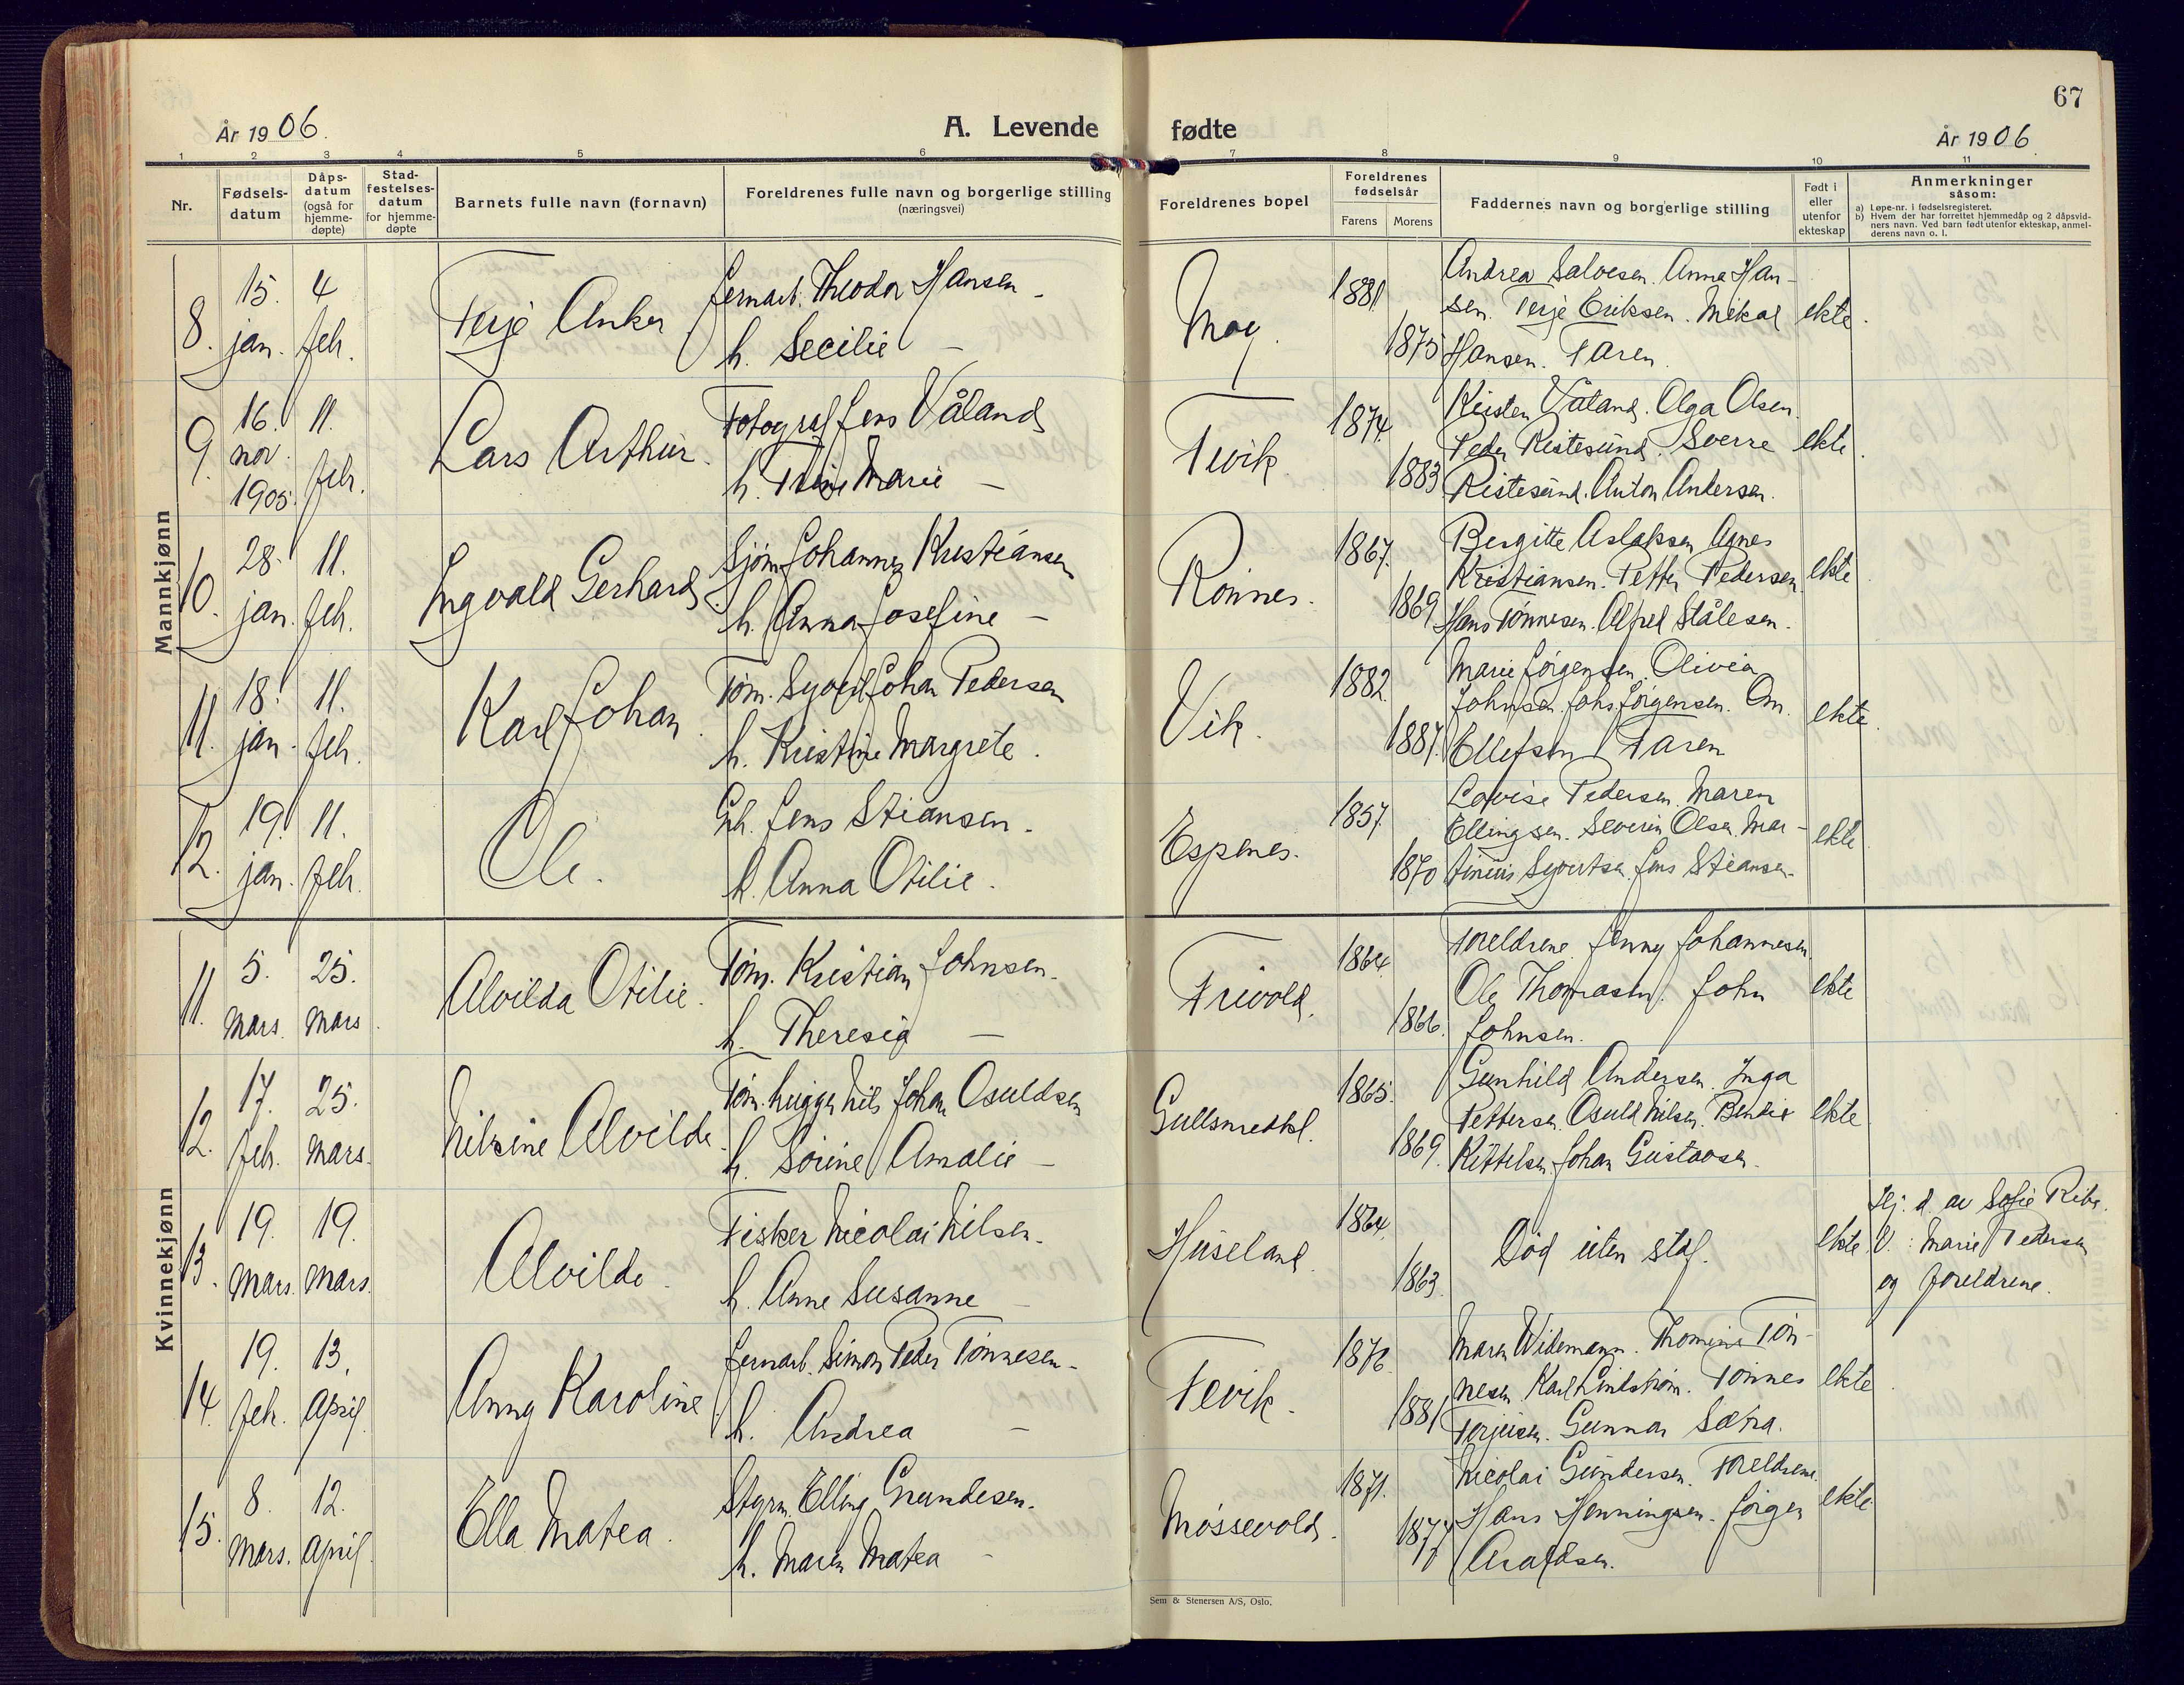 67
År 1906.
A. Levende fødte
År 1906
1 2 3 4 5 6 7 8 9 10 11
Nr.
Fødselsdatum
Dåpsdatum (også for hjemmedøpte)
Stadfestelsesdatum for hjemmedøpte
Barnets fulle navn (fornavn)
Foreldrenes fulle navn og borgerlige stilling (næringsvei)
Foreldrenes bopel
Foreldrenes fødselsår
Farens Morens
Faddernes navn og borgerlige stilling
Født i eller utenfor ekteskap
Anmerkninger såsom:
a) Løpe-nr. i fødselsregisteret.
b) Hvem der har forrettet hjemmedåp og 2 dåpsvidners navn. Ved barn født utenfor ekteskap, anmelderens navn o. l.
Mannkjønn
8. 15. jan. 4 feb. Terje Anker
Jernarb. Theodor Hansen -
h. Secilie -
Moy. 1881. 1875
Andrea Salvesen. Anna Han-
sen. Terje Eriksen. Mikal
Hansen. Faren.
ekte.
9. 16. nov. 1905. 11. feb. Lars Arthur.
Fotograf Jens Våland
h. Trine Marie -
Fevik. 1874. 1883
Kirsten Våland. Olga Olsen.
Peder Ristesund. Sverre
Ristesund. Anton Andersen.
ekte.
10. 28. jan. 11. feb. Ingvald Gerhard.
Sjøm. Johannes Kristiansen
h. Anna Josefine -
Rønnes. 1867. 1869
Birgitte Aslaksen Agnes
Kristiansen. Petter Pedersen
Hans Tønnesen. Alfred Stålesen.
ekte
11. 18. jan. 11. feb. Karl Johan.
Tøm. Syvert Johan Pedersen
h. Kristine Margrete.
Vik. 1882. 1887.
Marie Jørgensen. Olivia
Johnsen. Johs Jørgensen. Om.
Ellefsen Faren
ekte.
12. 19. jan. 11. feb. Ole.
Gb. Jens Stiansen.
h. Anna Otilie.
Espenes. 1857. 1870
Lovise Pedersen. Maren
Ellingsen. Severin Olsen Mar-
tinius Syvertsen. Jens Stiansen.
ekte
Kvinnekjønn
11. 5. mars. 25. mars. Alvilda Otilie.
Tøm. Kristian Johnsen.
h. Theresia -
Frivold. 1864. 1866.
Foreldrene. Jenny Johannesen.
Ole Thomasen. John
Johnsen.
ekte
12. 17. feb. 25. mars. Nilsine Alvilde.
Tøm.hugger Nils Johan Osuldsen
h. Sørine Amalie -
Gullsmedkl. 1865. 1869.
Gunhild Andersen. Inga
Pettersen. Osuld Nilsen. Bendix
Kittelsen. Johan Gustavsen.
ekte
13. 19. mars. 19. mars. Alvilde.
Fisker Nicolai Nilsen.
h. Anne Susanne -
Huseland. 1864. 1863.
Død uten staf.
ekte
Hj. d. av Sofie Ribe.
V.: Marie Petersen
og foreldrene.
14. 19. feb. 13. April. Anny Karoline
Jernarb. Simon Peder Tønnesen.
h. Andrea -
Fevik. 1876 1881
Maren Widemann. Thomine Tøn-
nesen Karl Lindstrøm. Tønnes
Terjesen. Gunnar Sætra.
ekte.
15. 8. mars. 12. April. Ella Matea.
Styrm. Elling Gundesen.
h. Maren Matea -
Møssevold. 1871. 1877
Nicolai Gundersen. Foreldrene.
Hans Henningsen. Jørgen
ekte.
Sem & Stenersen A/S, Oslo.